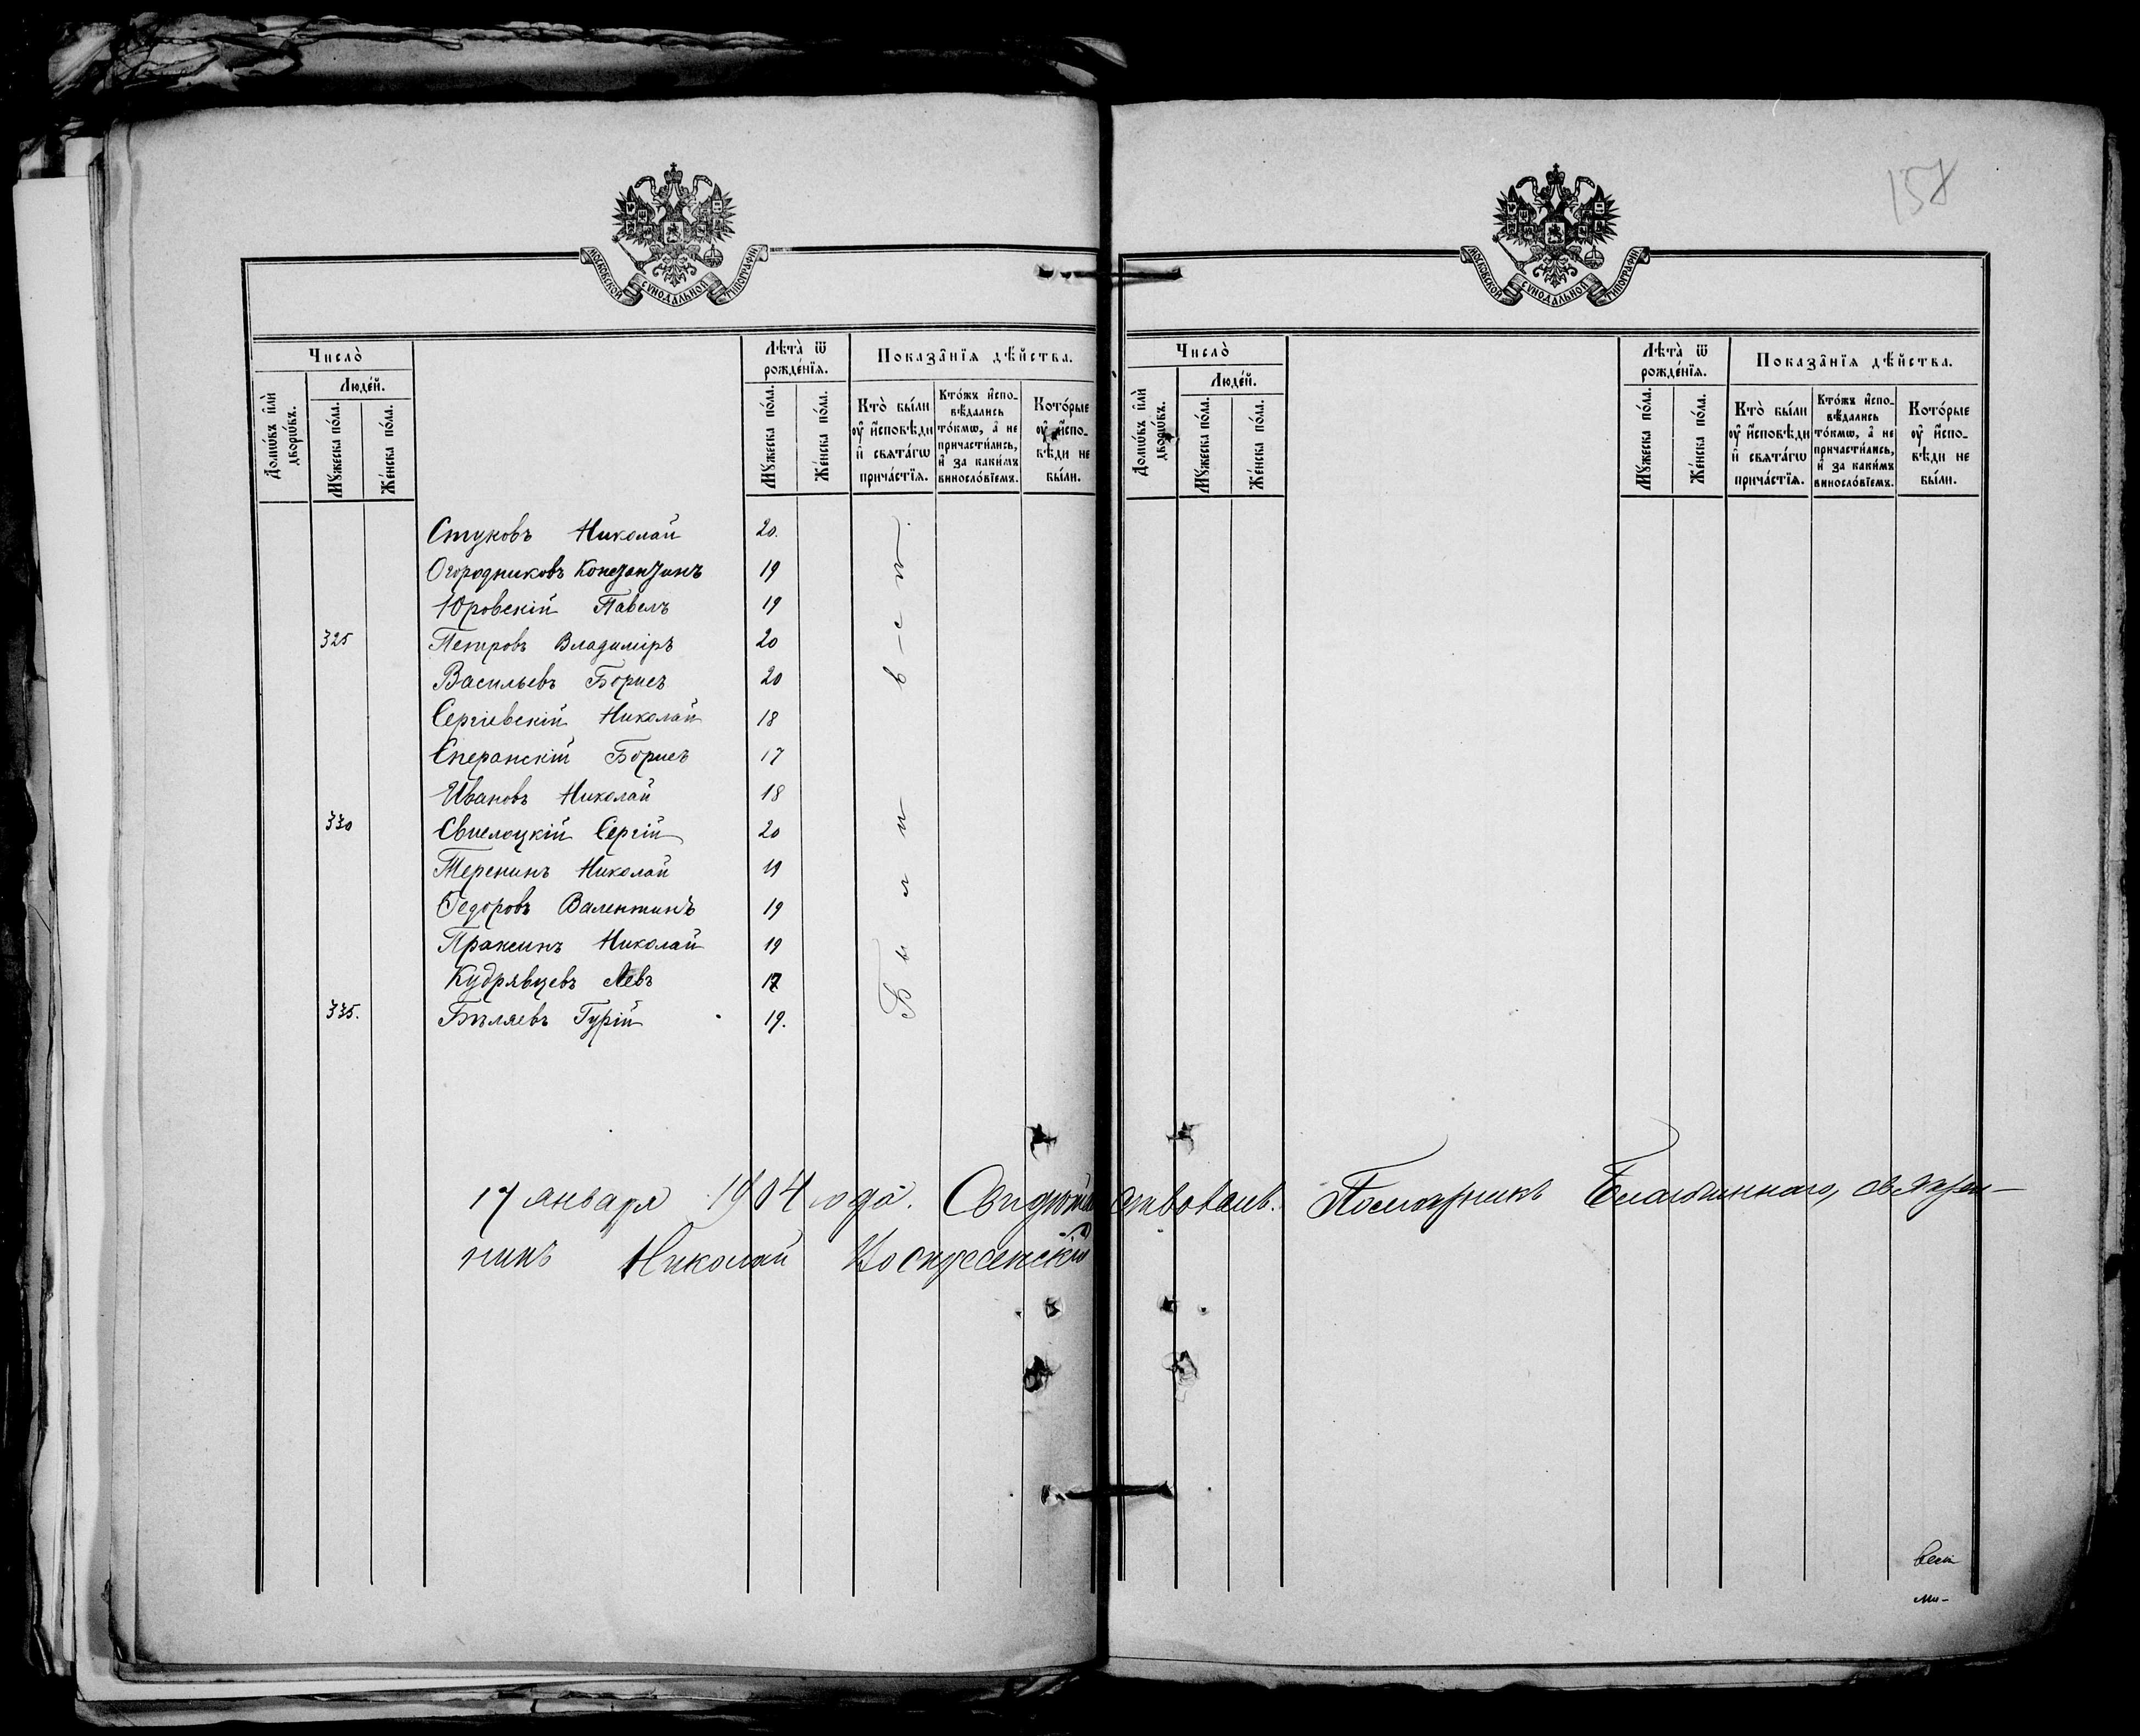 МОСКОВСКОЙ СУНОДАЛЬНОЙ ТИПОГРАФІИ
Число̀
Домѡ́въ и҆лѝ дворѡ́въ.
Люде́й.
Мꙋ́жеска по́ла.
Же́нска по́ла.
Лѣ́та ѿ рожде́нїѧ.
Мꙋ́жеска по́ла.
Же́нска по́ла.
Показа̑нїѧ дѣ́йства.
Кто̀ бы́ли оу҆ и҆сповѣ́ди и҆ свѧта́гѡ прича́стїѧ.
Кто́жъ и҆спо- вѣ́дались то́кмѡ, а҆ не причасти́лись, и҆ за каки́мъ винослові́емъ.
Кото́рые оу҆ и҆спо- вѣ́ди не бы́ли.
Стуковъ Николай 20.
Огородниковъ Константинъ 19
Юровскій Павелъ 19
325 Петровъ Владиміръ 20
Васильевъ Борисъ 20
Сергіевскій Николай 18
Сперанскій Борисъ 17
Ивановъ Николай 18
330 Свиелоцкій Сергій 20
Теренинъ Николай 19
Ѳедоровъ Валентинъ 19
Праксинъ Николай 19
Кудрявцевъ Левъ 17
335. Бѣляевъ Гурій 19.
Были в-с-и
17 января 1904 года. Свидѣтельствовалъ. Помощникъ Благочиннаго, священ-
никъ Николай Воскресенскій
157
МОСКОВСКОЙ СУНОДАЛЬНОЙ ТИПОГРАФІИ
Число̀
Домѡ́въ и҆лѝ дворѡ́въ.
Люде́й.
Мꙋ́жеска по́ла.
Же́нска по́ла.
Лѣ́та ѿ рожде́нїѧ.
Мꙋ́жеска по́ла.
Же́нска по́ла.
Показа̑нїѧ дѣ́йства.
Кто̀ бы́ли оу҆ и҆сповѣ́ди и҆ свѧта́гѡ прича́стїѧ.
Кто́жъ и҆спо- вѣ́дались то́кмѡ, а҆ не причасти́лись, и҆ за каки́мъ винослові́емъ.
Кото́рые оу҆ и҆спо- вѣ́ди не бы́ли.